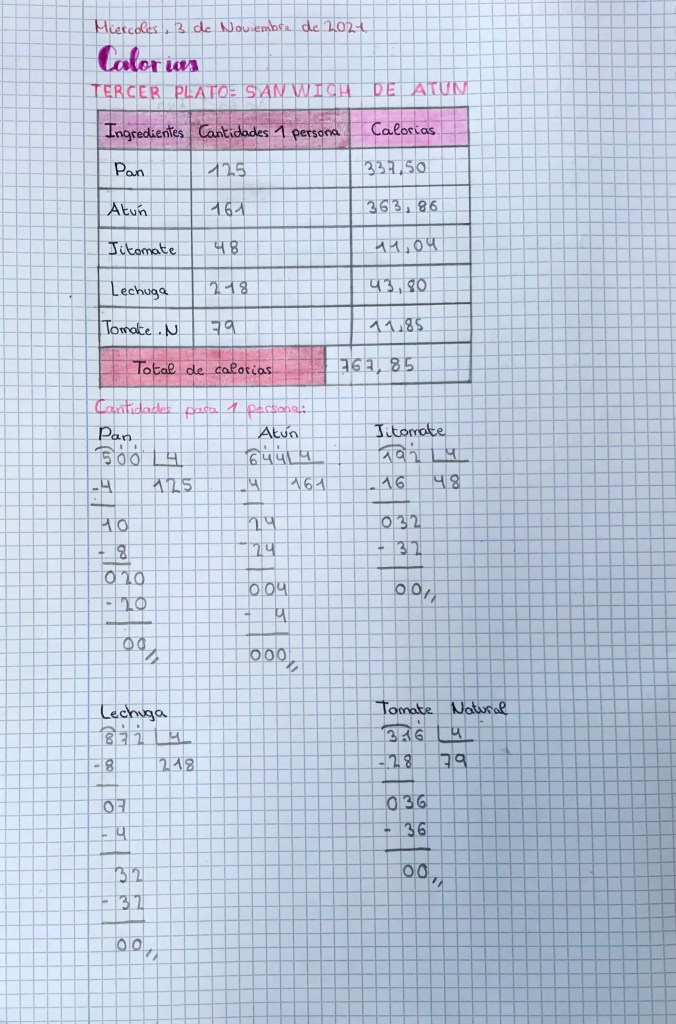 Miercoles, 3 de Noviembre de 2021.
Calorias
TERCER PLATO= SANWICH DE ATUN
Ingredientes Cantidades 1 persona Calorias
Pan 125 337,50
Atún 161 363,86
Jitomate 48 11,04
Lechuga 218 43,80
Tomate.N 79 11,85
Total de calorias 767,85
Cantidades para 1 persona:
Pan Atún Jitomate
500 4 644 4 192 4
-4 125 -4 161 -16 48
10 24 032
- 8 - 24 - 32
020 004 00,,
- 20 - 4
00,, 000,,
Lechuga Tomate Natural
872 4 316 4
-8 218 -28 79
07 036
- 4 - 36
32 00,,
- 32
00,,